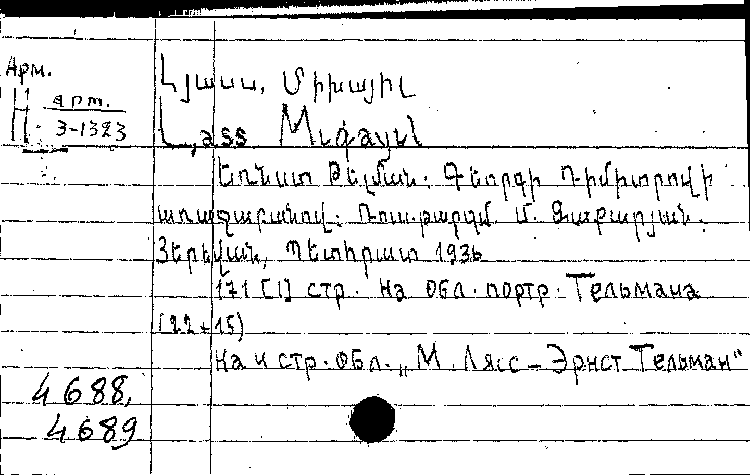 Арм.
Н арт.
3-1323
Լյասս, Միխայիլ
L,ass Miqayil
Եռնստ Թելման. Գեորգի Դիմիտրովի
առաջաբանով. Ռուս. թարգմ. Մ. Զաքարյան.
Յերևան, Պետհրատ 1936
171 [1] стр. на обл. портр. Тельмана
(22×15)
на 4 стр. обл. „М. Лясс – Эрнст Тельман"
4688,
4689